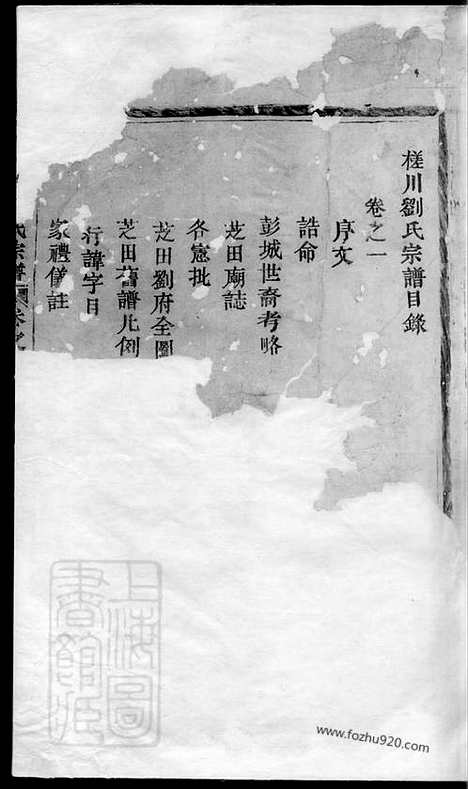 槎川劉氏宗譜目錄
卷之一
序文
誥命
彭城世裔考略
芝田廟誌
各憲批
芝田劉府全圖
芝田舊譜凡例
行諱字目
家禮儀註
氏宗譜
上海圖
書館藏
www.fozhu920.com